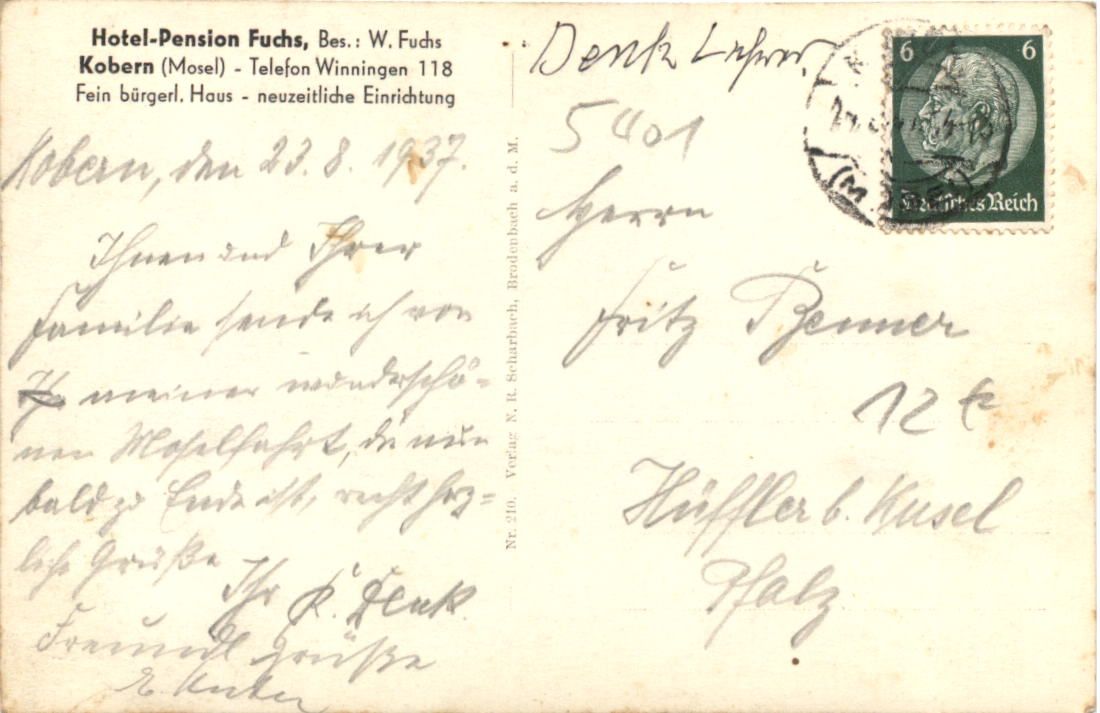 Hotel-Pension Fuchs, Bes.: W. Fuchs
Kobern (Mosel) - Telefon Winningen 118
Fein bürgerl. Haus - neuzeitliche Einrichtung
Kobern, den 23.8.1937.
Ihnen und Ihrer
Familie sende ich von
meiner wunderschö-
nen Moselfahrt, die nun
bald zu Ende ist, recht herz-
liche Grüße
Ihr K. Denk.
Freundl. Grüße
Nr. 210. Verlag N. R. Scharbach, Brodenbach a. d. M.
Denk Lehrer
5401
Herrn
Fritz Benner
12 
Hüffler b. Kusel
Pfalz
6 6
Deutsches Reich